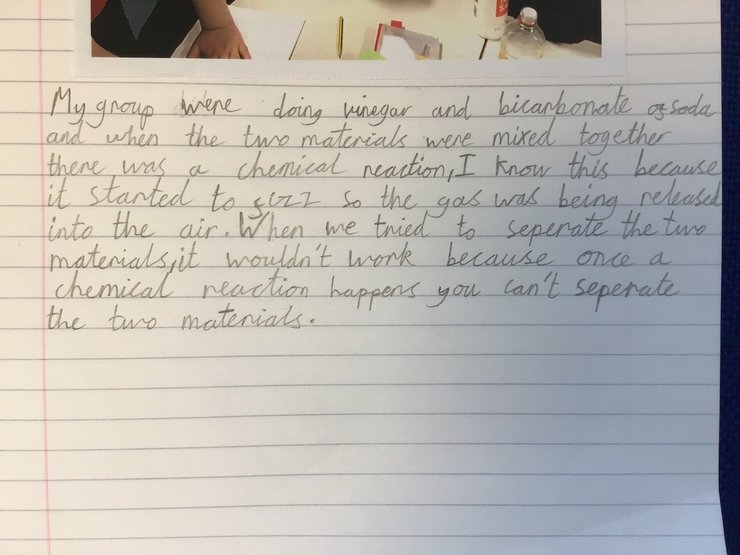 My group were doing vinegar and bicarbonate of soda
and when the two materials were mixed together
there was a chemical reaction, I know this because
it started to fizz so the gas was being released
into the air. When we tried to seperate the two
materials, it wouldn't work because once a
chemical reaction happens you can't seperate
the two materials.